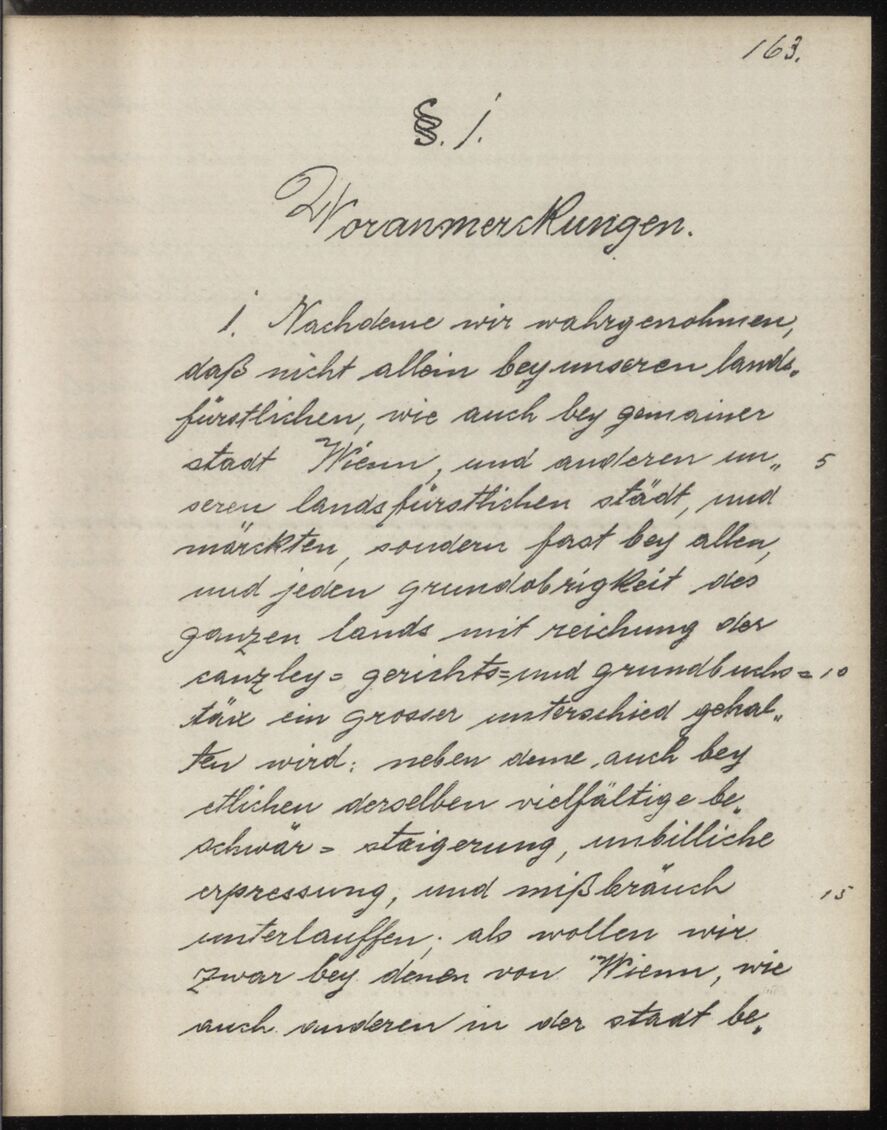 163.
§. 1.
Voranmerckungen.
1. Nachdeme wir wahrgenohmen,
daß nicht allein bey unseren lands„
fürstlichen, wie auch bey gemainer
stadt Wienn, und anderen un„ 5
seren landsfürstlichen städt, und
märckten, sondern fast bey allen,
und jeden grundobrigkeit des
ganzen lands mit reichung der
canzley= gerichts= und grundbuchs= 10
täx ein grosser unterschied gehal„
ten wird: neben deme, auch bey
etlichen derselben vielfältige be„
schwär= staigerung, unbilliche
erpressung, und mißbräuch 15
unterlauffen; als wollen wir
zwar bey denen von Wienn, wie
auch anderen in der stadt be„